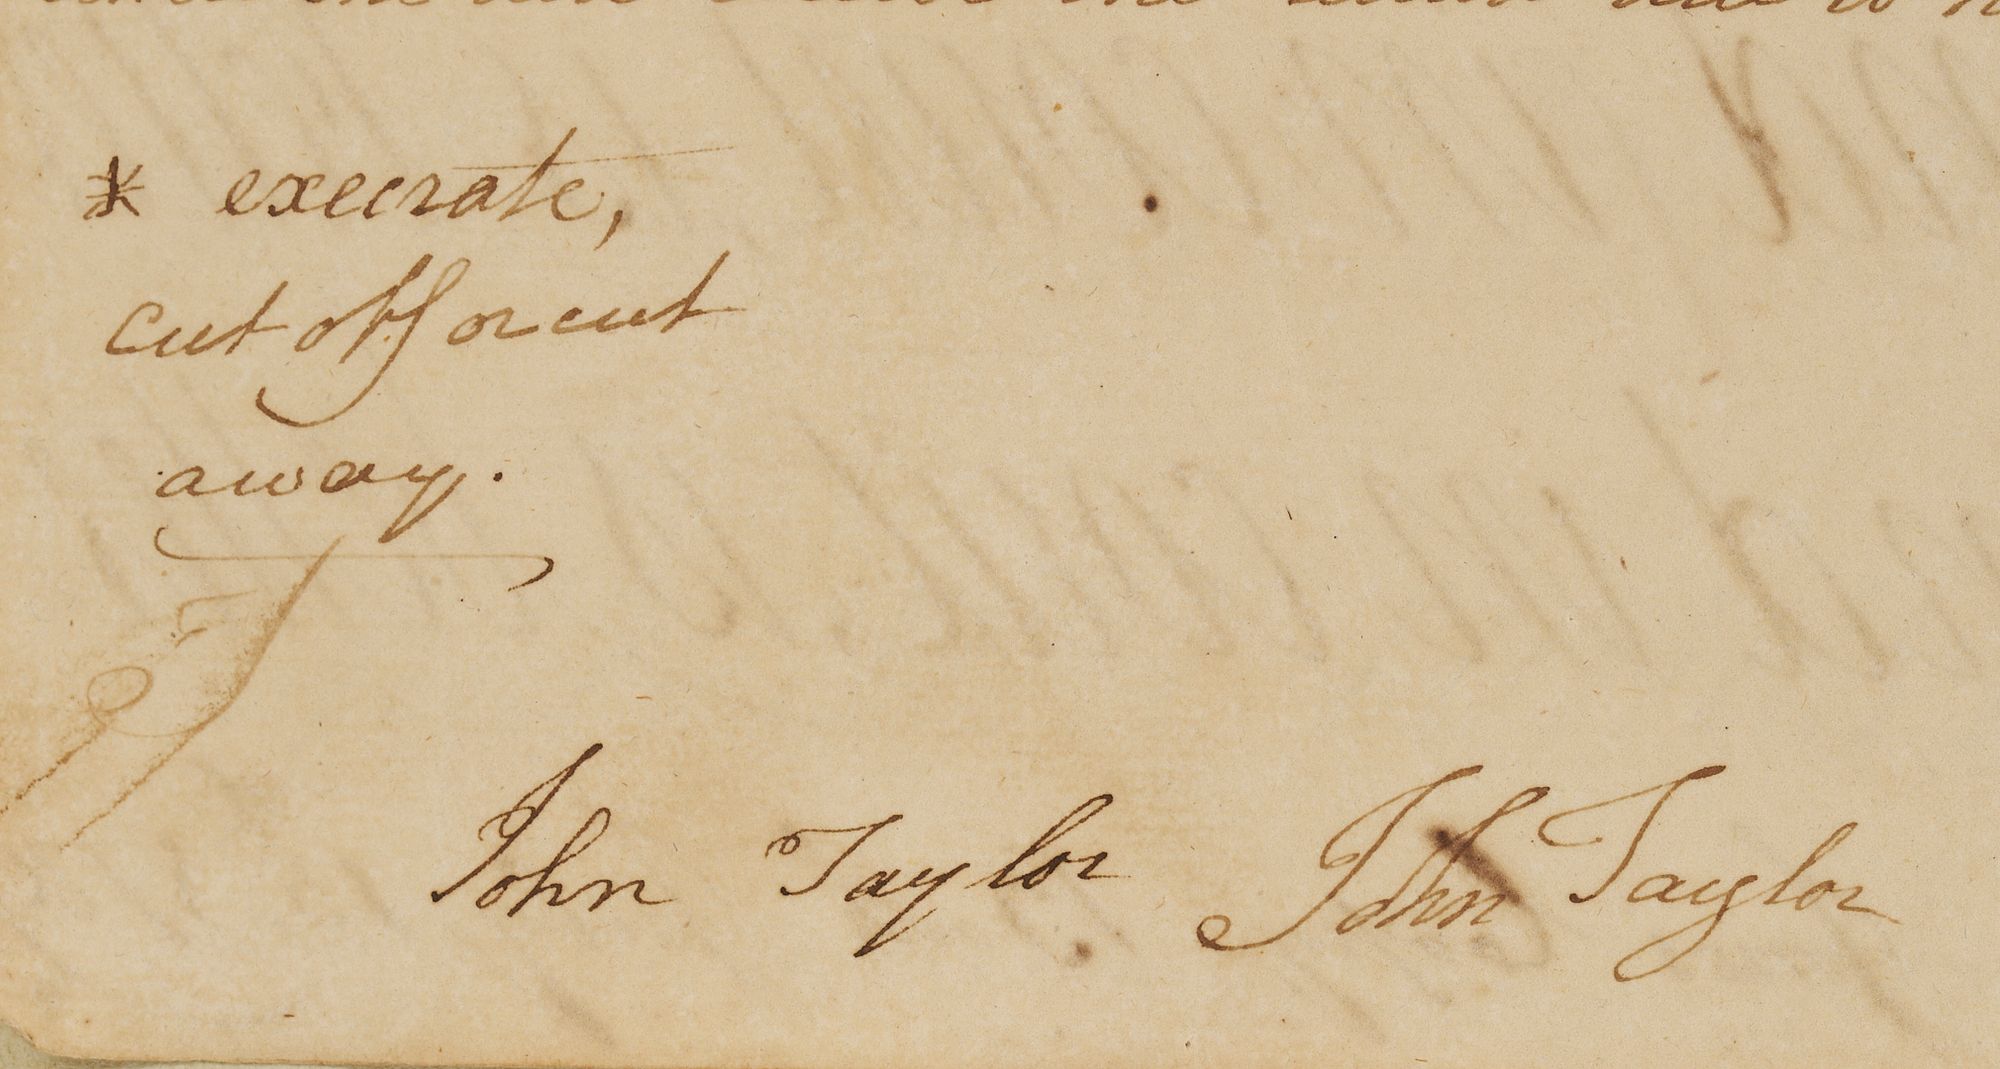 * execrate,
cut off or cut
away.
John Taylor John Taylor